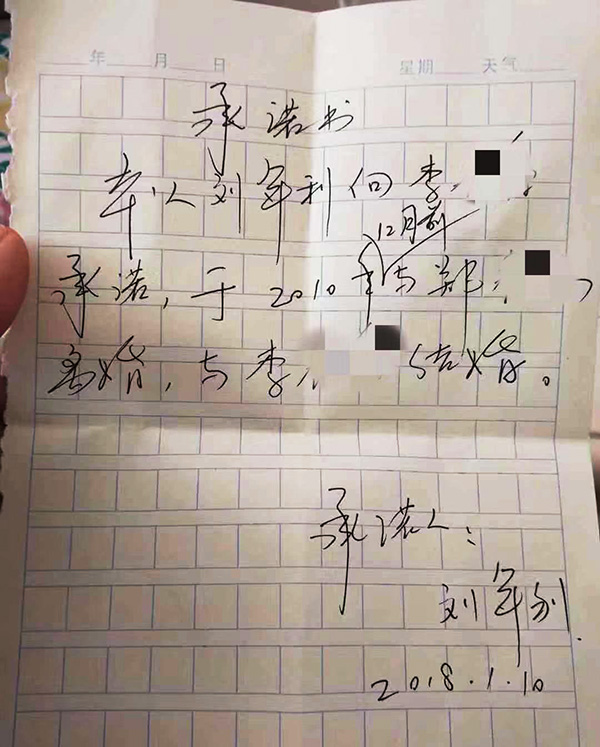 年 月 日 星期 天气
承诺书
本人刘年利向李
12月前
承诺，于2010年与郑，
离婚，与李 结婚。
承诺人：
刘年利
2018.1.10